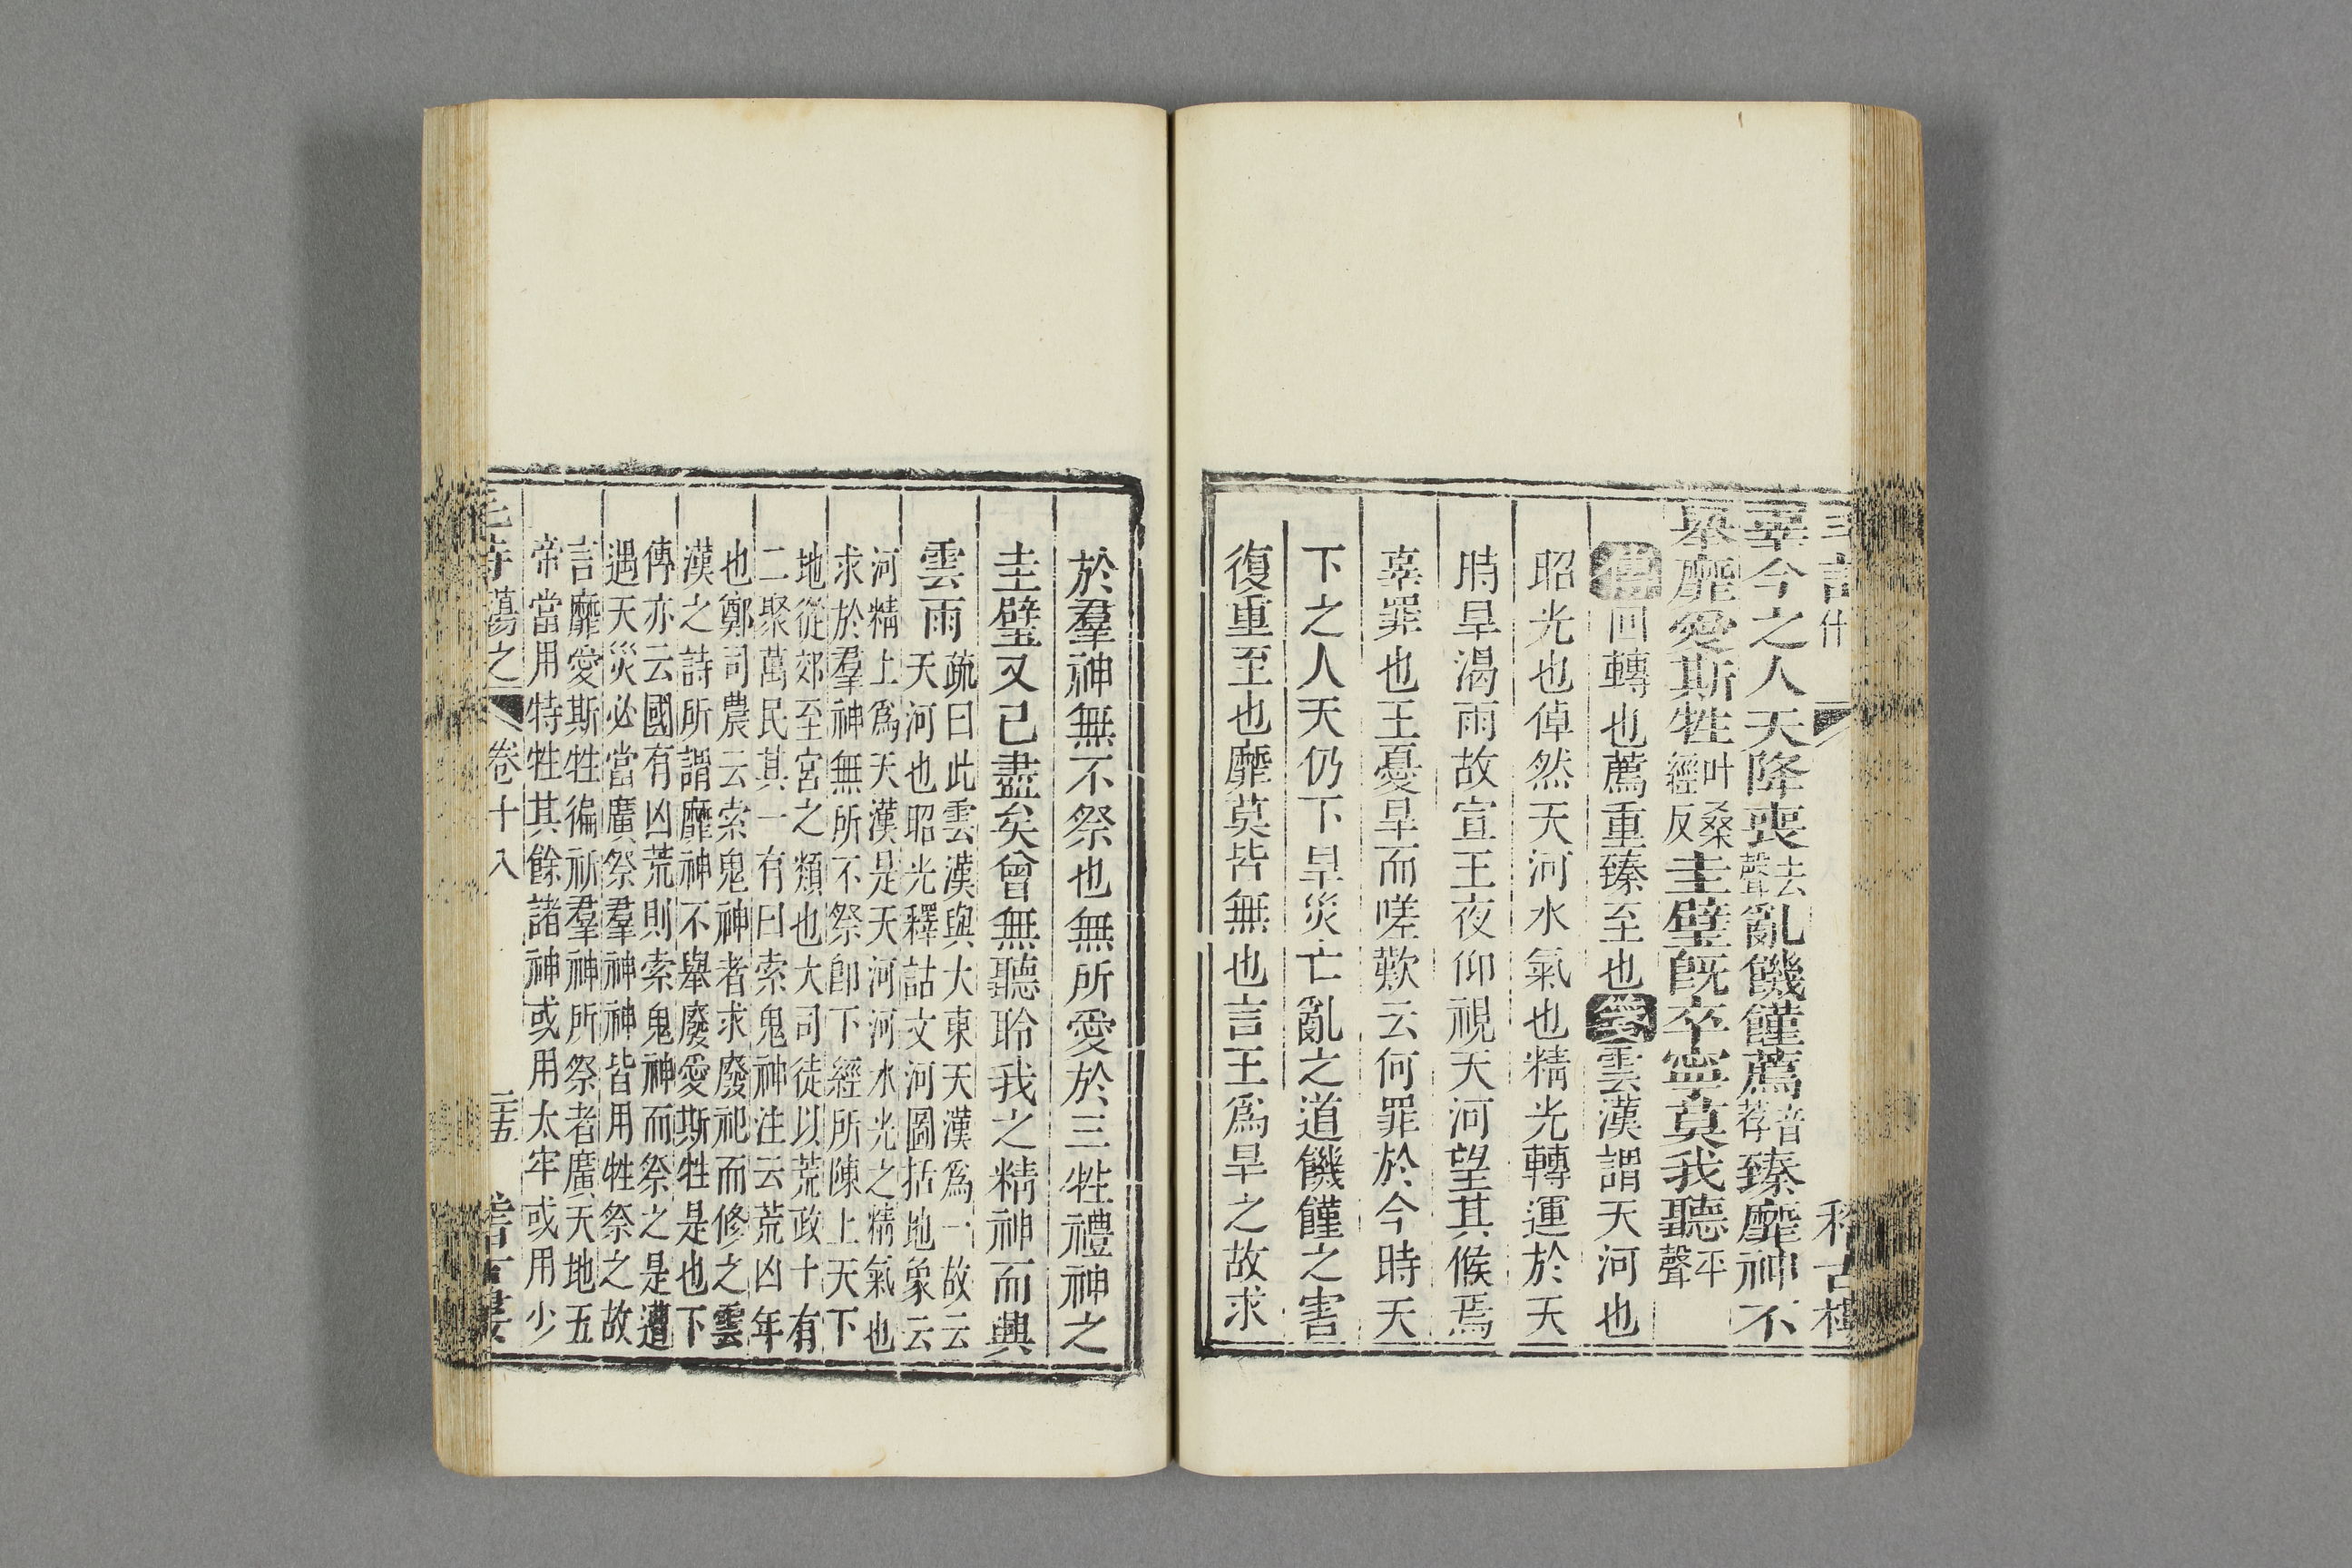 辜今之人天降喪去聲亂饑饉薦音荐臻靡神不
舉靡愛斯牲叶桑經反圭璧既卒寧莫我聽平聲
傳回轉也薦重臻至也箋雲漢謂天河也
昭光也倬然天河水氣也精光轉運於天
時旱渴雨故宣王夜仰視天河望其候焉
辜罪也王憂旱而嗟歎云何罪於今時天
下之人天仍下旱災亡亂之道饑饉之害
復重至也靡莫皆無也言王為旱之故求
於羣神無不祭也無所愛於三牲禮神之
圭璧又已盡矣曾無聽聆我之精神而興
雲雨疏曰此雲漢與大東天漢為一故云
天河也昭光釋詁文河圖括地象云
河精上為天漢是天河河水光之精氣也
求於羣神無所不祭卽下經所陳上天下
地從郊至宮之類也大司徒以荒政十有
二聚萬民其一有曰索鬼神注云荒凶年
也鄭司農云索鬼神者求廢祀而修之雲
漢之詩所謂靡神不舉廢愛斯牲是也下
傳亦云國有凶荒則索鬼神而祭之是遭
遇天災必當廣祭羣神神皆用牲祭之故
言靡愛斯牲徧祈羣神所祭者廣天地五
帝當用特牲其餘諸神或用太牢或用少
蕩之 卷十八